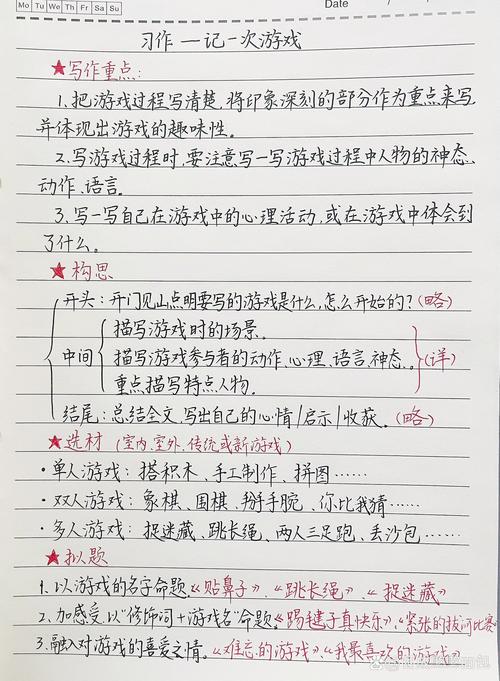 Mo Tu We Th Fr Sa Su
Date / /
习作—记一次游戏
★写作重点:
1.把游戏过程写清楚,将印象深刻的部分作为重点来写,
并体现出游戏的趣味性。
2.写游戏过程时,要注意写一写游戏过程中人物的神态、
动作、语言。
3.写一写自己在游戏中的心理活动,或在游戏中体会到
了什么。
★构思
开头:开门见山点明要写的游戏是什么,怎么开始的?(略)
描写游戏时的场景。
中间 描写游戏参与者的动作、心理、语言、神态。(详)
重点描写特点人物。
结尾:总结全文,写出自己的心情/启示/收获。(略)
★选材(室内、室外、传统或新游戏)
·单人游戏:搭积木、手工制作、拼图……
·双人游戏:象棋、围棋、掰手腕、你比我猜……
·多人游戏:捉迷藏、跳长绳、两人三足跑、丢沙包……
★拟题
1.以游戏的名字命题《贴鼻子》、《跳长绳》、《捉迷藏》
2.加感受,以“修饰词+游戏名”命题。《踢毽子真快乐》、《紧张的拔河比赛》
3.融入对游戏的喜爱之情。《难忘的游戏》、《我最喜欢的游戏》